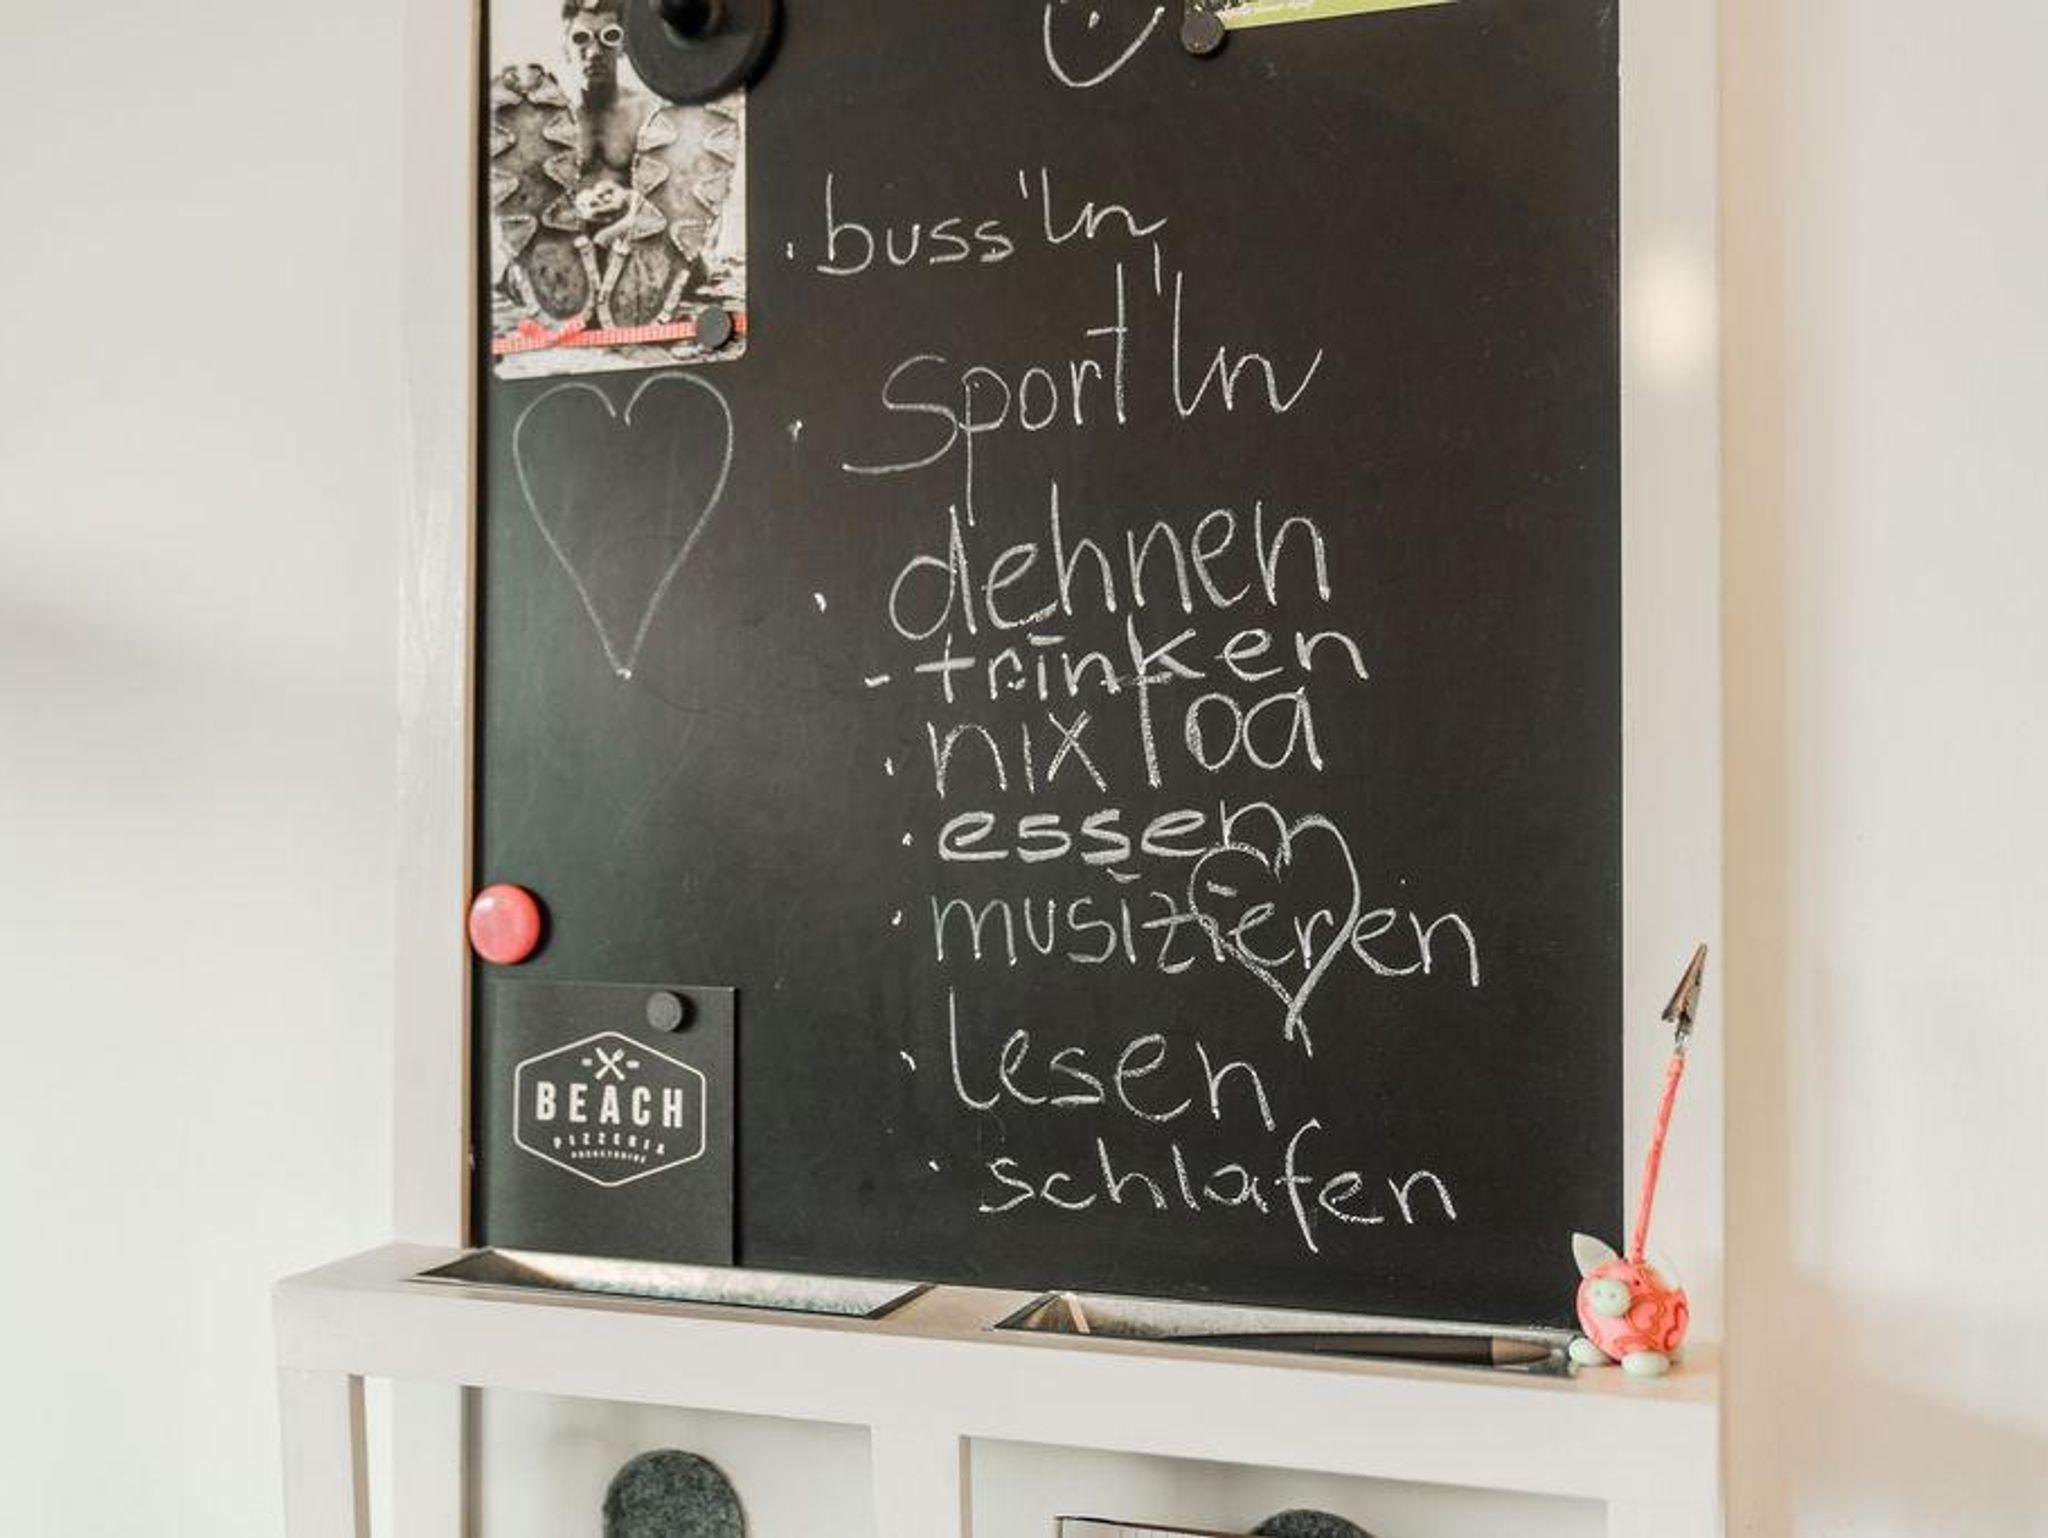 · buss'ln
· Sport'ln
· dehnen
- trinken
· nix toa
· essen
· musizieren
· lesen
· schlafen
BEACH
PIZZERIA